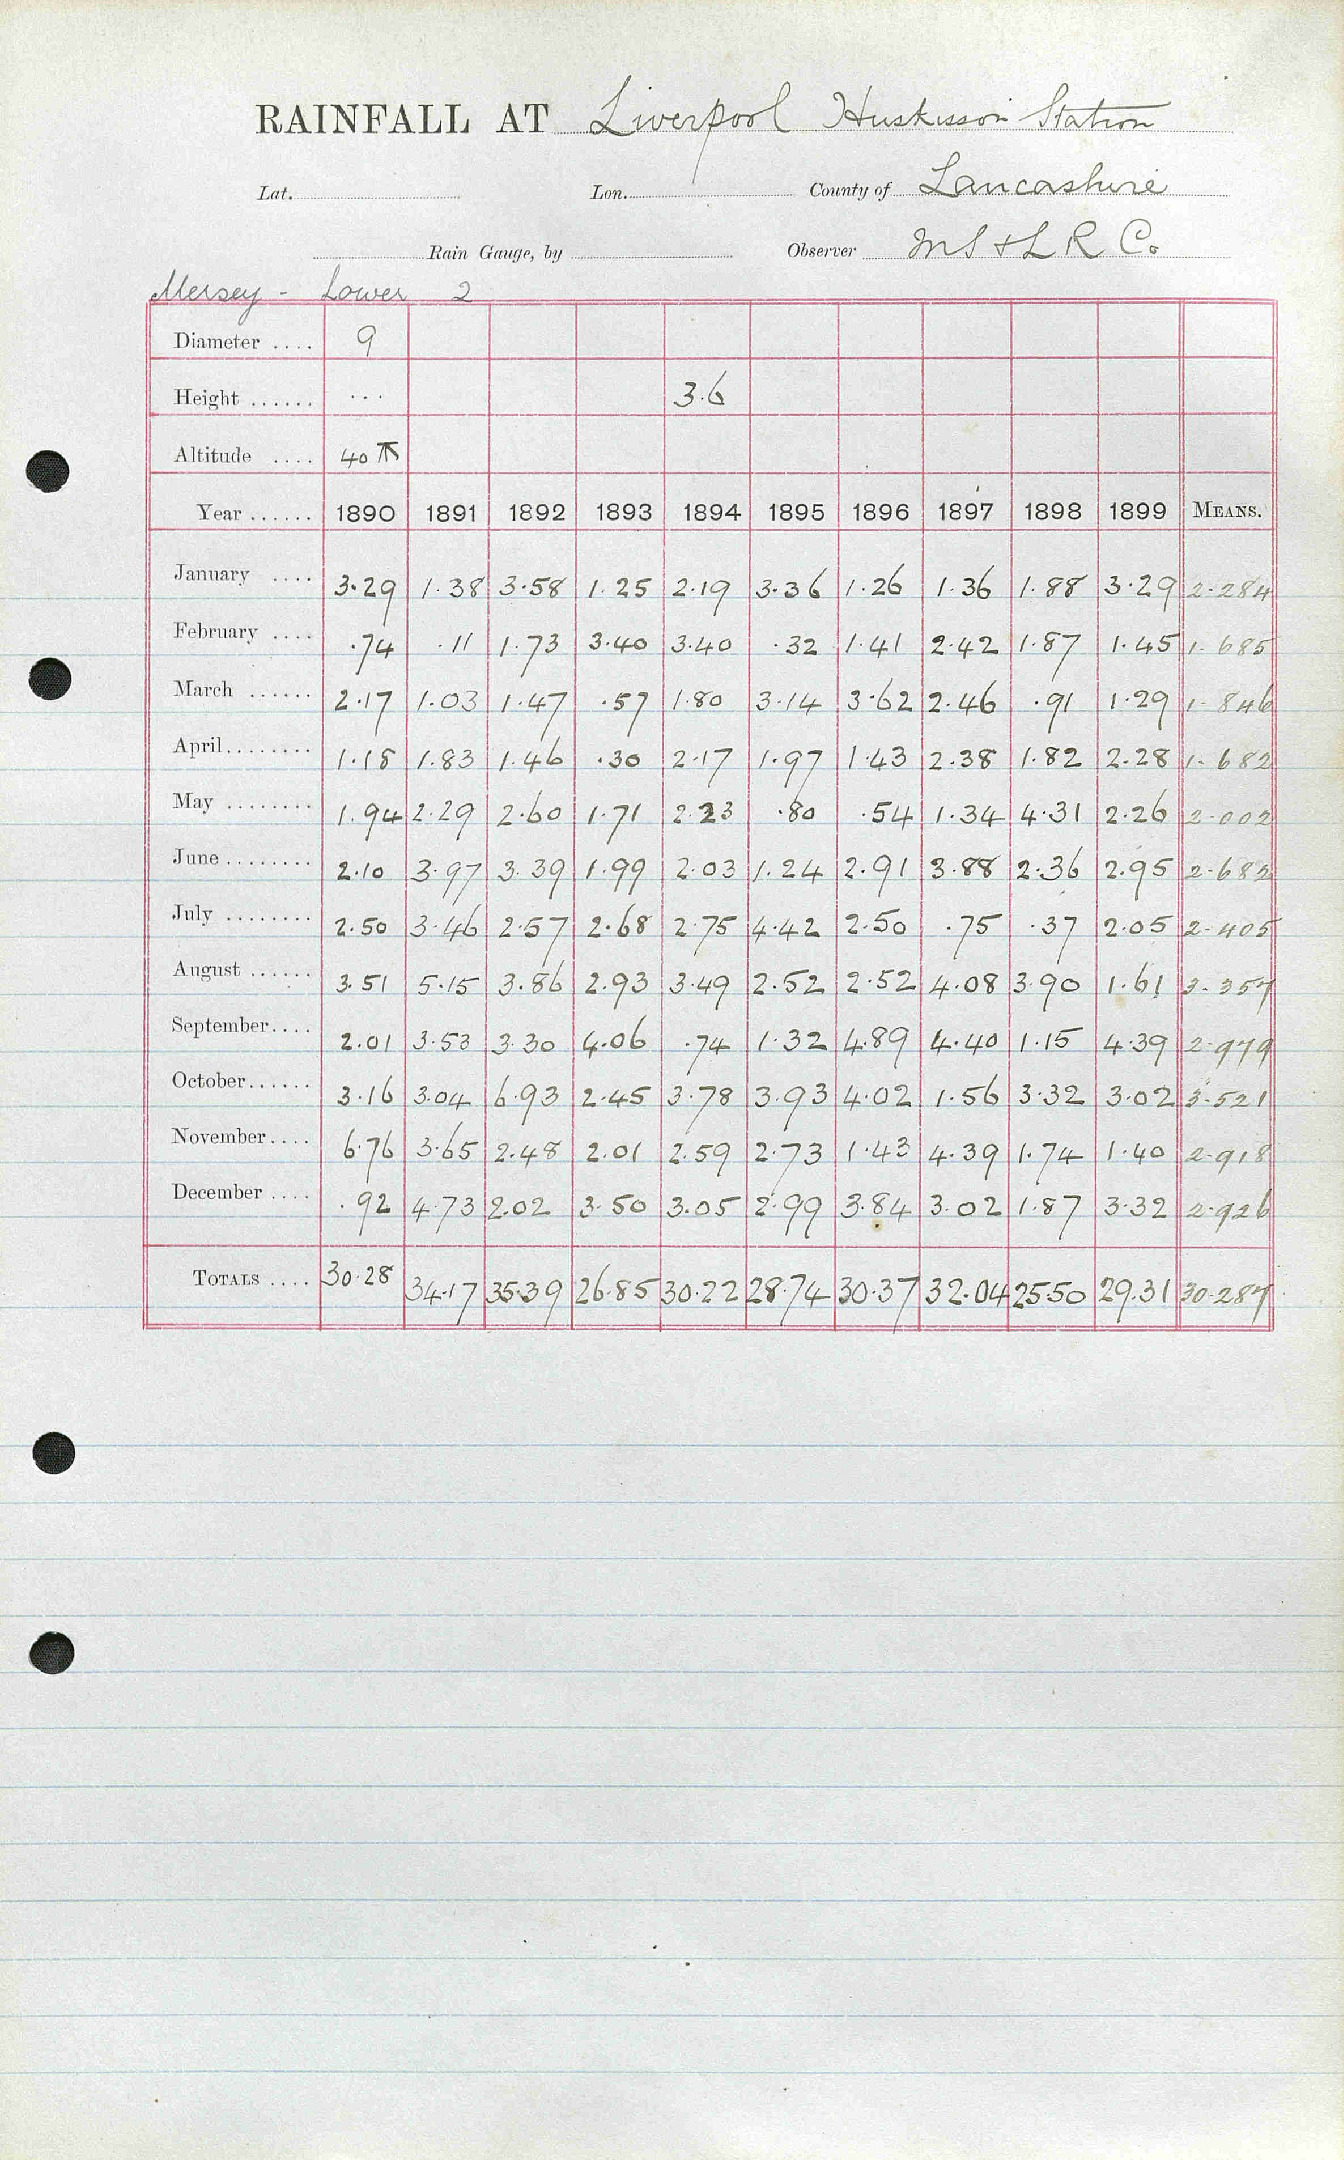 RAINFALL AT Liverpool Huskisson Station
Lat. Lon. County of Lancashire
Rain Gauge, by Observer M S & L R Co.
Mersey - Lower 2
Diameter .... 9
Height ...... ... 3.6
Altitude .... 40
Year ...... 1890 1891 1892 1893 1894 1895 1896 1897 1898 1899 MEANS.
January .... 3.29 1.38 3.58 1.25 2.19 3.36 1.26 1.36 1.88 3.29 2.284
February .... .74 .11 1.73 3.40 3.40 .32 1.41 2.42 1.87 1.45 1.685
March ...... 2.17 1.03 1.47 .57 1.80 3.14 3.62 2.46 .91 1.29 1.846
April........ 1.18 1.83 1.46 .30 2.17 1.97 1.43 2.38 1.82 2.28 1.682
May ........ 1.94 2.29 2.60 1.71 2.23 .80 .54 1.34 4.31 2.26 2.002
June ........ 2.10 3.97 3.39 1.99 2.03 1.24 2.91 3.88 2.36 2.95 2.682
July ........ 2.50 3.46 2.57 2.68 2.75 4.42 2.50 .75 .37 2.05 2.405
August ...... 3.51 5.15 3.86 2.93 3.49 2.52 2.52 4.08 3.90 1.61 3.357
September.... 2.01 3.53 3.30 4.06 .74 1.32 4.89 4.40 1.15 4.39 2.979
October...... 3.16 3.04 6.93 2.45 3.78 3.93 4.02 1.56 3.32 3.02 3.521
November.... 6.76 3.65 2.48 2.01 2.59 2.73 1.43 4.39 1.74 1.40 2.918
December .... .92 4.73 2.02 3.50 3.05 2.99 3.84 3.02 1.87 3.32 2.926
TOTALS .... 30.28 34.17 35.39 26.85 30.22 28.74 30.37 32.04 25.50 29.31 30.287